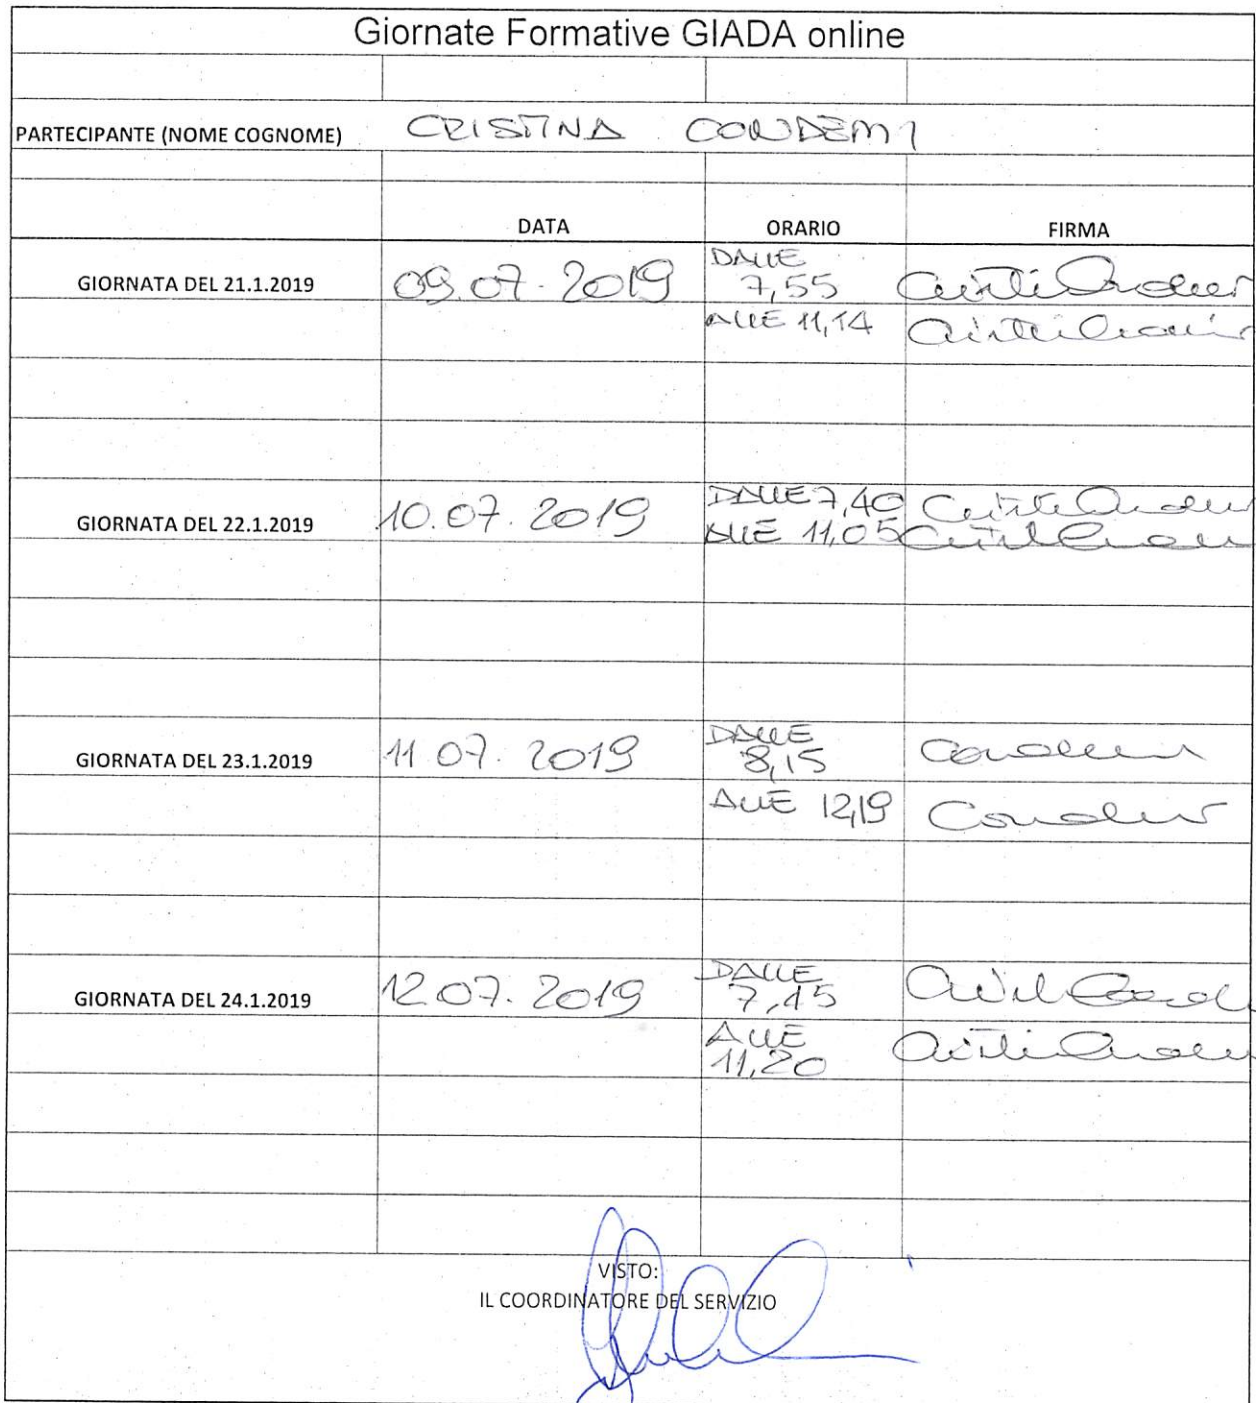 Giornate Formative GIADA online
PARTECIPANTE (NOME COGNOME) CRISTINA CONDEMI
DATA ORARIO FIRMA
DALLE
GIORNATA DEL 21.1.2019 09.07.2019 7,55
ALLE 11,14
GIORNATA DEL 22.1.2019 10.07.2019 DALLE 7,40
ALLE 11,05
DALLE
GIORNATA DEL 23.1.2019 11.07.2019 8,15 Condemi
ALLE 12,19 Condemi
DALLE
GIORNATA DEL 24.1.2019 12.07.2019 7,45
ALLE
11,20
VISTO:
IL COORDINATORE DEL SERVIZIO